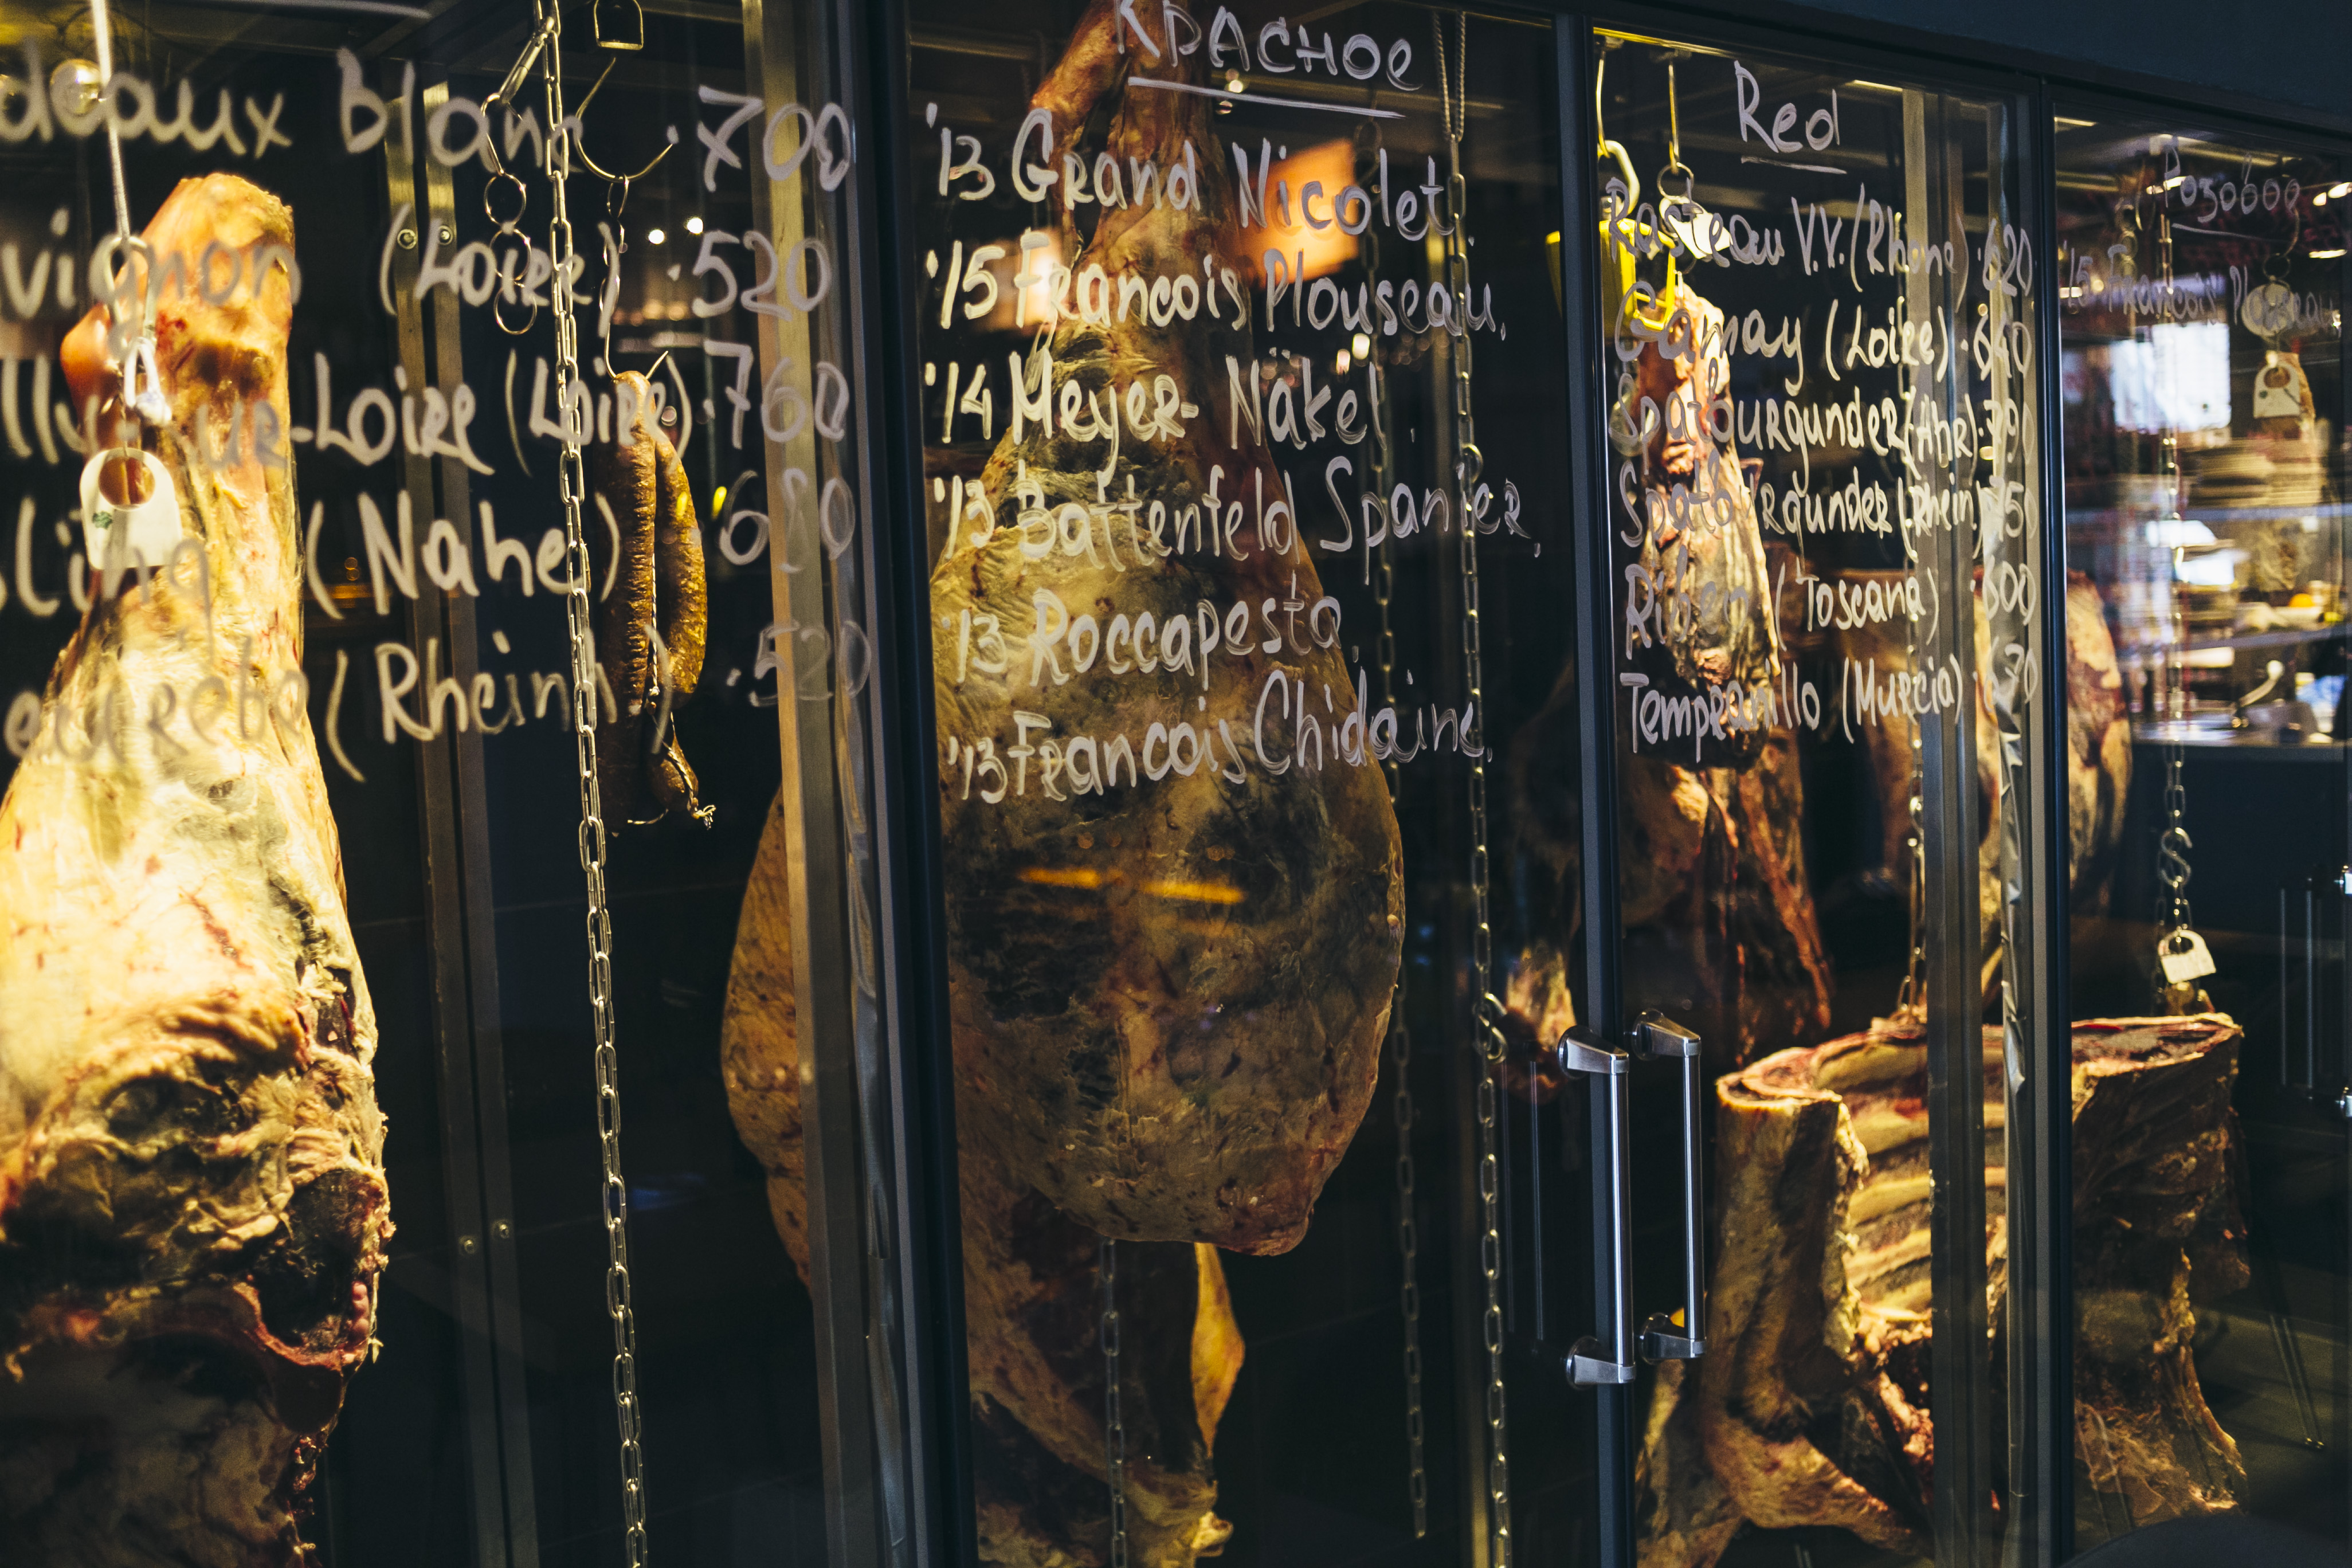 deaux blanc .700
vignon (Loire) .520
lly-sur-Loire (Loire) .760
sling (Nahe) .680
eurebe (Rheinh) .520
Красное
'13 Grand Nicolet,
'15 Francois Plouseau,
'14 Meyer-Näkel,
'13 Battenfeld Spanier,
'13 Roccapesta,
'13 Francois Chidaine,
Red
Rasteau V.V. (Rhone) .620
Gamay (Loire) .640
Spatburgunder (Ahr) .790
Spatburgunder (Rhein) 750
(Toscana) .600
Tempranillo (Murcia) 
Розовое
'15 Francois Plouseau